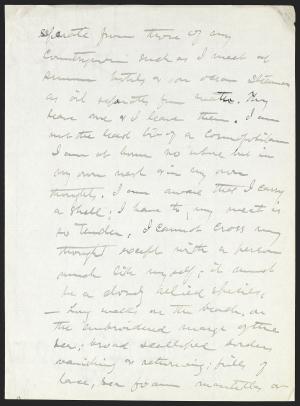 separate from those of my
countrymen such as I meet at
summer hotels or on ocean steamers
as oil separates from water. They
leave me & I leave them. I am
not the least bit of a Cosmopolitan
I am at home no where but in
my own nest & in my own
thoughts. I am aware that I carry
a shell; I have to, my meat is
so tender, I cannot cross my
thought except with a person
much like myself; it must
be a closely allied species.
— Long walks on the beach, on
the embroidered marge of the
sea; broad scalloped borders
vanishing & returning; frills of
lace, sea foam mantillas or